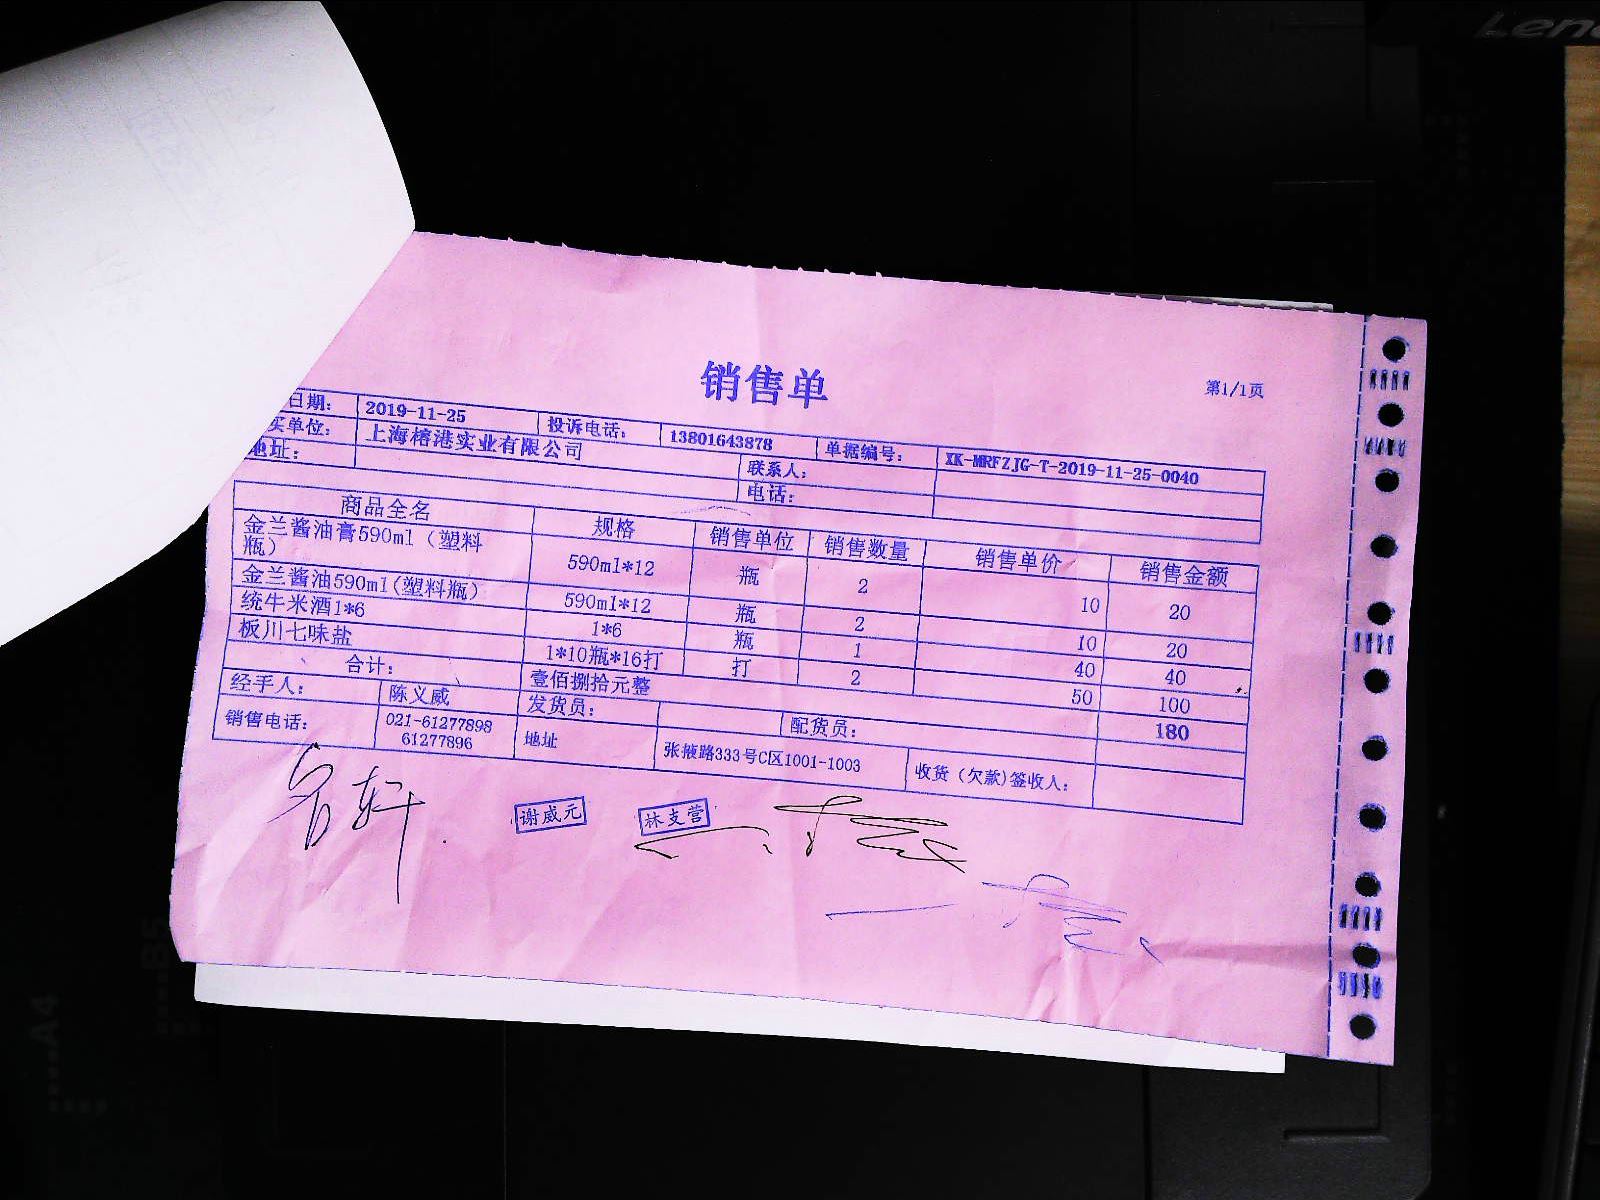 销售单
第1/1页
日期： 2019-11-25 投诉电话： 13801643878 单据编号： XK-MRFZJG-T-2019-11-25-0040
买单位： 上海榕港实业有限公司 联系人：
地址： 电话：
商品全名 规格 销售单位 销售数量 销售单价 销售金额
金兰酱油膏590ml（塑料瓶） 590ml*12 瓶 2 10 20
金兰酱油590ml(塑料瓶） 590ml*12 瓶 2 10 20
统牛米酒1*6 1*6 瓶 1 40 40
板川七味盐 1*10瓶*16打 打 2 50 100
合计： 壹佰捌拾元整 180
经手人： 陈义威 发货员： 配货员：
销售电话： 021-61277898 61277896 地址 张掖路333号C区1001-1003 收货（欠款)签收人：
谢威元 林支营
A4
B5